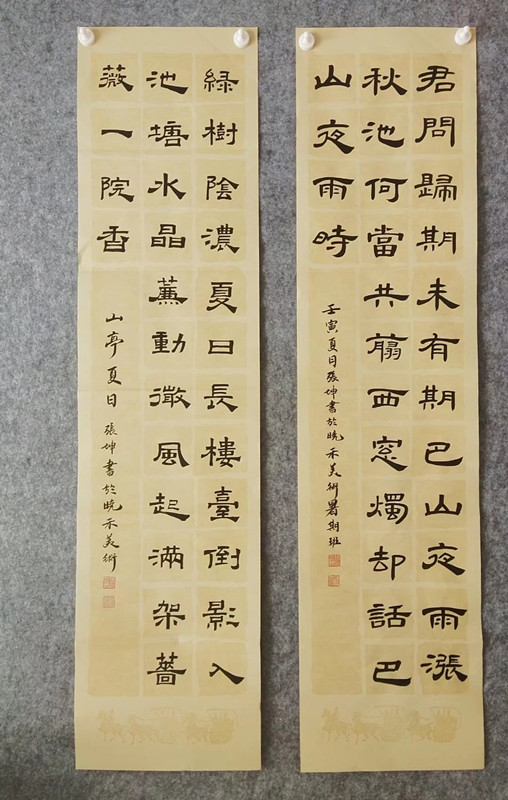 君問歸期未有期巴山夜雨漲
秋池何當共翦西窓燭却話巴
山夜雨時
壬寅夏月張坤書於曉禾美術暑期班
綠樹陰濃夏日長樓臺倒影入
池塘水晶薫動微風起滿架薔
薇一院香
山亭夏日 張坤書於曉禾美術